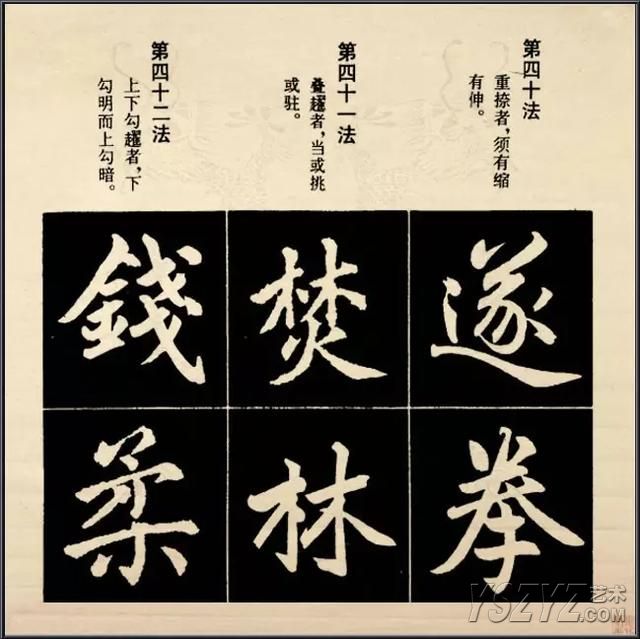 第四十法
重捺者，须有缩
有伸。
第四十一法
叠趯者，当或挑
或驻。
第四十二法
上下勾趯者，下
勾明而上勾暗。
遂
拳
焚
林
錢
柔
YSZYZ艺术
.COM